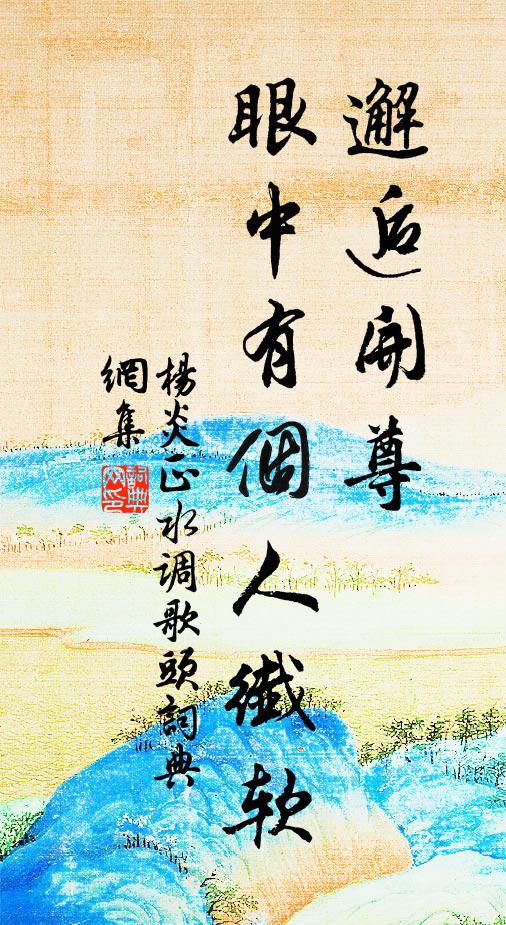 邂逅開尊
眼中有個人纖软
楊炎正水调歌頭詞典
網集